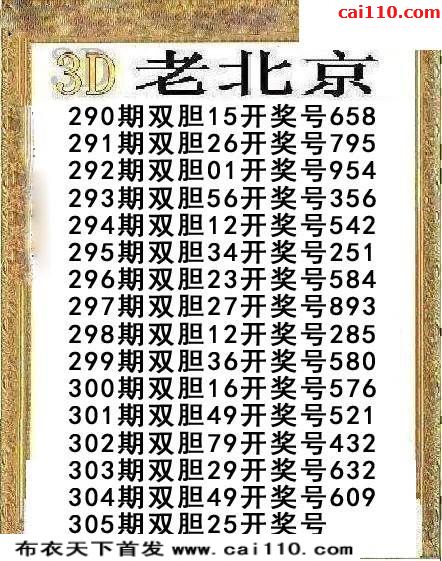 cai110.com
3D 老北京
290期双胆15开奖号658
291期双胆26开奖号795
292期双胆01开奖号954
293期双胆56开奖号356
294期双胆12开奖号542
295期双胆34开奖号251
296期双胆23开奖号584
297期双胆27开奖号893
298期双胆12开奖号285
299期双胆36开奖号580
300期双胆16开奖号576
301期双胆49开奖号521
302期双胆79开奖号432
303期双胆29开奖号632
304期双胆49开奖号609
305期双胆25开奖号
布衣天下首发 www.cai110.com